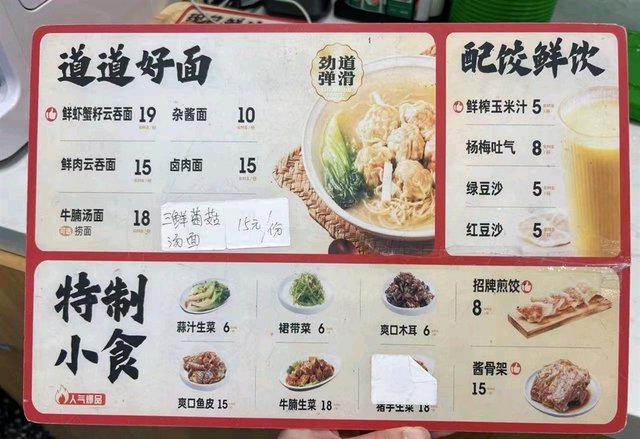 道道好面
劲道
弹滑
鲜虾蟹籽云吞面 19
杂酱面 10
鲜肉云吞面 15
卤肉面 15
牛腩汤面 18
捞面
三鲜菌菇
汤面
15元/份
配饺鲜饮
鲜榨玉米汁 5
杨梅吐气 8
绿豆沙 5
红豆沙 5
特制
小食
人气爆品
蒜汁生菜 6
裙带菜 6
爽口木耳 6
招牌煎饺
8
爽口鱼皮 15
牛腩生菜 18
猪手生菜 18
酱骨架
15